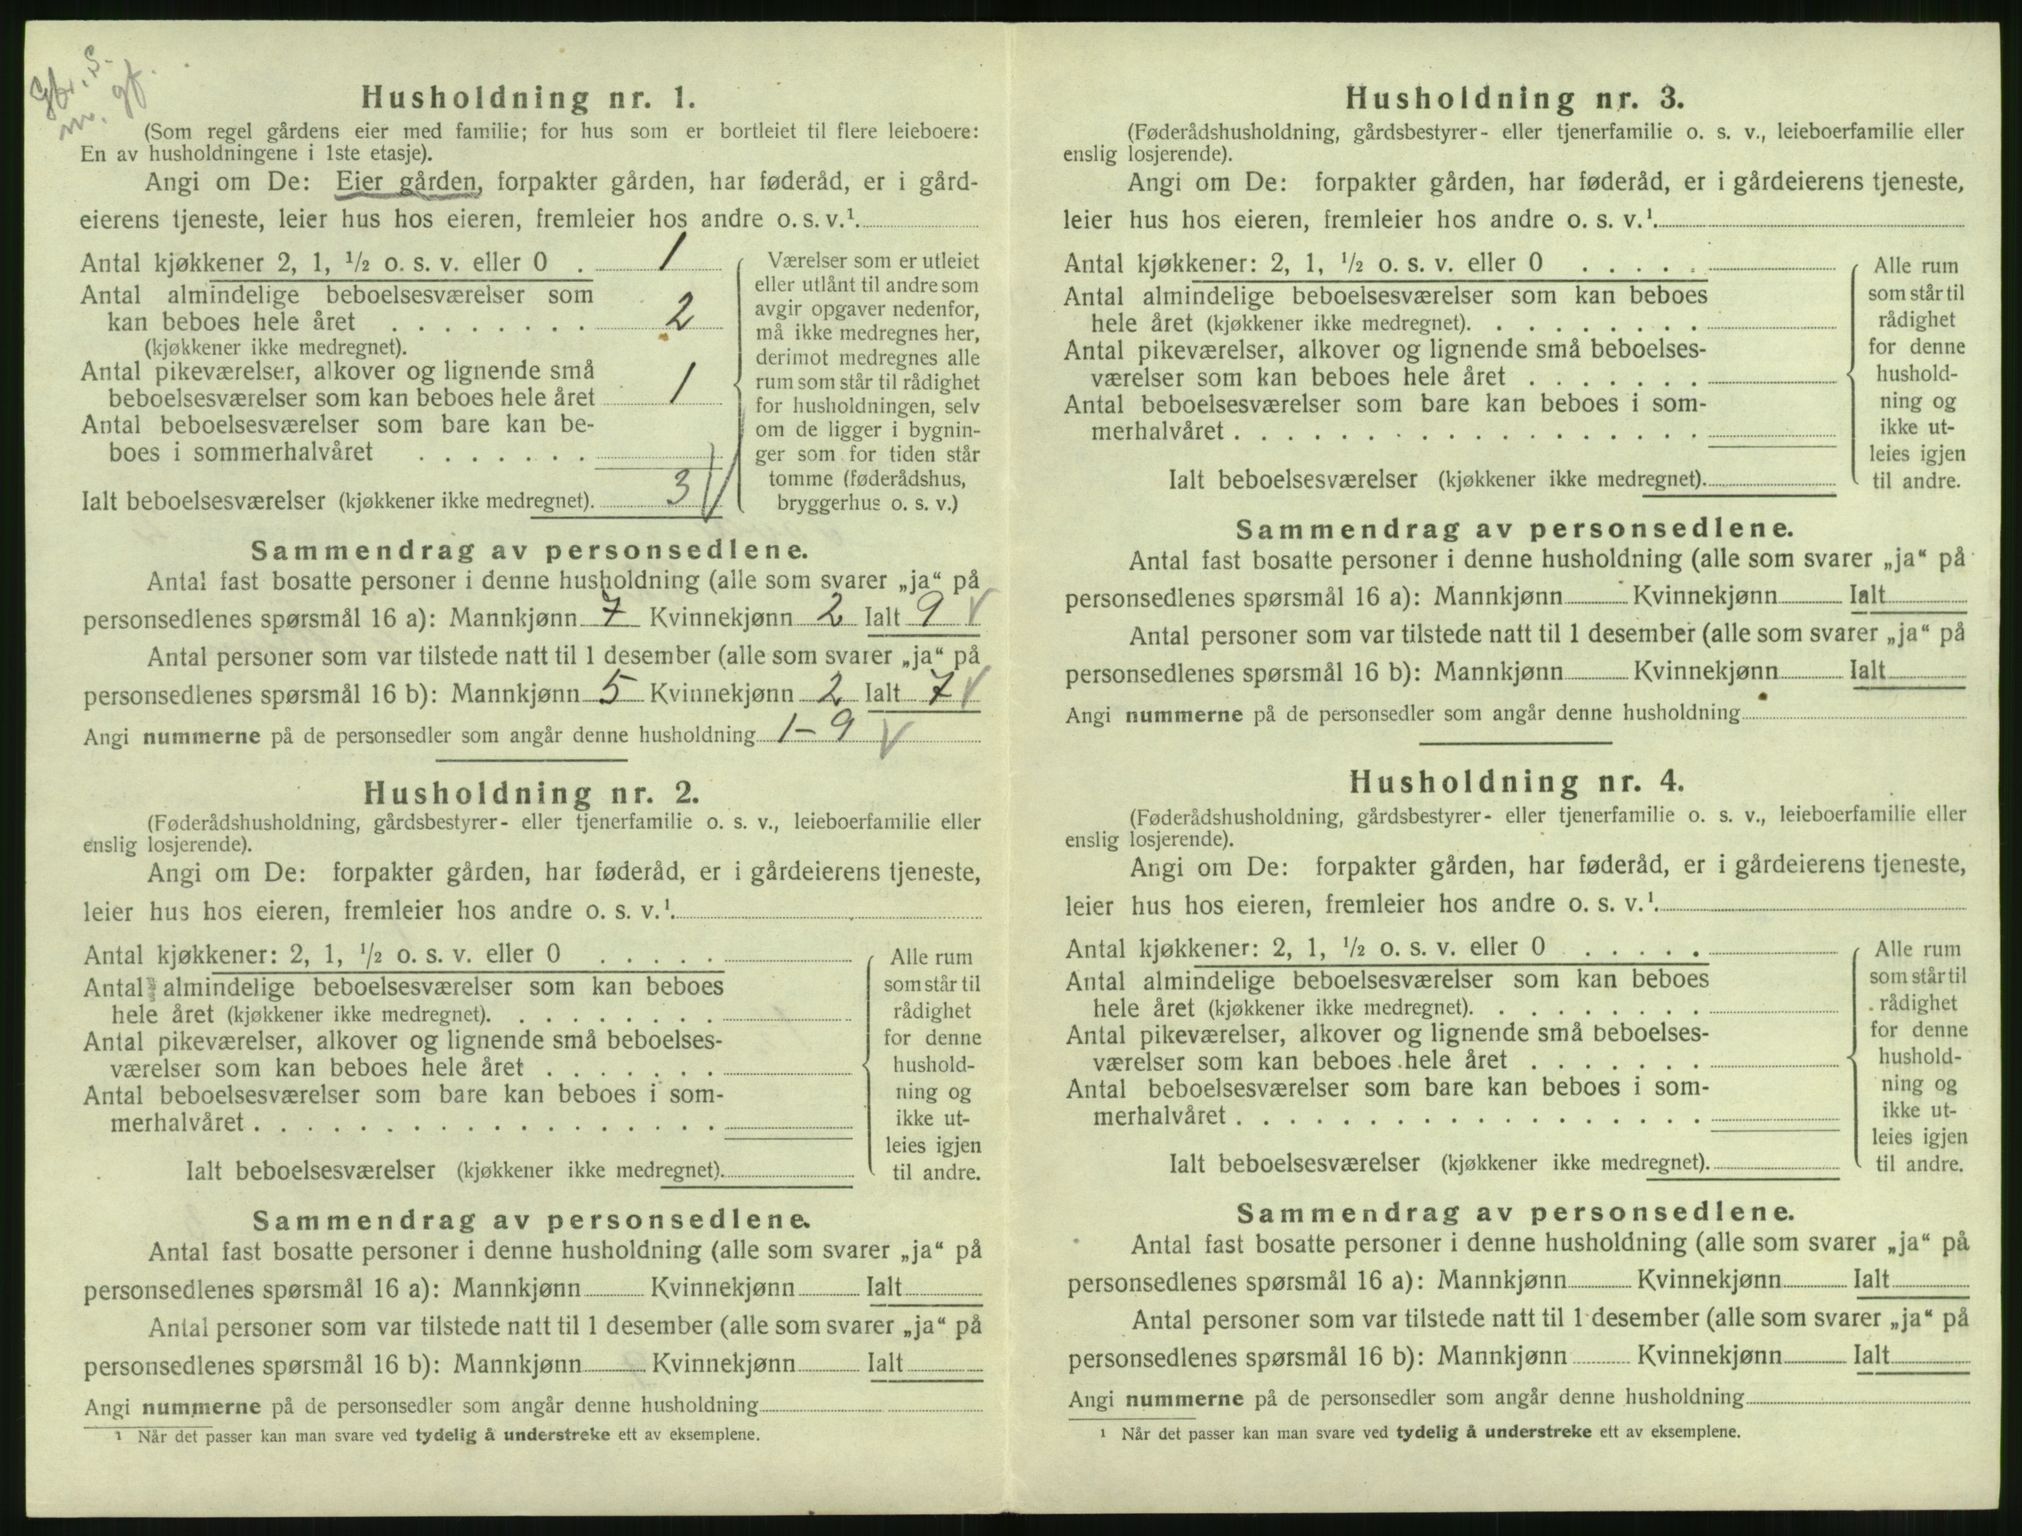 Gbr. S.
m. gf.
Husholdning nr. 1.
(Som regel gårdens eier med familie; for hus som er bortleiet til flere leieboere:
En av husholdningene i 1ste etasje).
Angi om De: Eier gården, forpakter gården, har føderåd, er i gård-
eierens tjeneste, leier hus hos eieren, fremleier hos andre o. s. v.¹.
Antal kjøkkener 2, 1, ½ o. s. v. eller 0 . 1
Antal almindelige beboelsesværelser som
kan beboes hele året . . . . . . . . 2
(kjøkkener ikke medregnet).
Antal pikeværelser, alkover og lignende små
beboelsesværelser som kan beboes hele året 1
Antal beboelsesværelser som bare kan be-
boes i sommerhalvåret . . . . . . .
Ialt beboelsesværelser (kjøkkener ikke medregnet). 3
Værelser som er utleiet
eller utlånt til andre som
avgir opgaver nedenfor,
må ikke medregnes her,
derimot medregnes alle
rum som står til rådighet
for husholdningen, selv
om de ligger i bygnin-
ger som for tiden står
tomme (føderådshus,
bryggerhus o. s. v.)
Sammendrag av personsedlene.
Antal fast bosatte personer i denne husholdning (alle som svarer „ja“ på
personsedlenes spørsmål 16 a): Mannkjønn 7 Kvinnekjønn 2 Ialt 9
Antal personer som var tilstede natt til 1 desember (alle som svarer „ja“ på
personsedlenes spørsmål 16 b): Mannkjønn 5 Kvinnekjønn 2 Ialt 7
Angi nummerne på de personsedler som angår denne husholdning 1-9
Husholdning nr. 2.
(Føderådshusholdning, gårdsbestyrer- eller tjenerfamilie o. s. v., leieboerfamilie eller
enslig losjerende).
Angi om De: forpakter gården, har føderåd, er i gårdeierens tjeneste,
leier hus hos eieren, fremleier hos andre o. s. v.¹.
Antal kjøkkener: 2, 1, ½ o. s. v. eller 0 . . . . .
Antal almindelige beboelsesværelser som kan beboes
hele året (kjøkkener ikke medregnet). . . . . . . .
Antal pikeværelser, alkover og lignende små beboelses-
værelser som kan beboes hele året . . . . . . .
Antal beboelsesværelser som bare kan beboes i som-
merhalvåret . . . . . . . . . . . . . . . . . .
Ialt beboelsesværelser (kjøkkener ikke medregnet).
Alle rum
som står til
rådighet
for denne
hushold-
ning og
ikke ut-
leies igjen
til andre.
Sammendrag av personsedlene.
Antal fast bosatte personer i denne husholdning (alle som svarer „ja“ på
personsedlenes spørsmål 16 a): Mannkjønn Kvinnekjønn Ialt
Antal personer som var tilstede natt til 1 desember (alle som svarer „ja“ på
personsedlenes spørsmål 16 b): Mannkjønn Kvinnekjønn Ialt
Angi nummerne på de personsedler som angår denne husholdning
¹ Når det passer kan man svare ved tydelig å understreke ett av eksemplene.
Husholdning nr. 3.
(Føderådshusholdning, gårdsbestyrer- eller tjenerfamilie o. s. v., leieboerfamilie eller
enslig losjerende).
Angi om De: forpakter gården, har føderåd, er i gårdeierens tjeneste,
leier hus hos eieren, fremleier hos andre o. s. v.¹.
Antal kjøkkener: 2, 1, ½ o. s. v. eller 0 . . . . .
Antal almindelige beboelsesværelser som kan beboes
hele året (kjøkkener ikke medregnet). . . . . . . .
Antal pikeværelser, alkover og lignende små beboelses-
værelser som kan beboes hele året . . . . . . .
Antal beboelsesværelser som bare kan beboes i som-
merhalvåret . . . . . . . . . . . . . . . . . .
Ialt beboelsesværelser (kjøkkener ikke medregnet).
Alle rum
som står til
rådighet
for denne
hushold-
ning og
ikke ut-
leies igjen
til andre.
Sammendrag av personsedlene.
Antal fast bosatte personer i denne husholdning (alle som svarer „ja“ på
personsedlenes spørsmål 16 a): Mannkjønn Kvinnekjønn Ialt
Antal personer som var tilstede natt til 1 desember (alle som svarer „ja“ på
personsedlenes spørsmål 16 b): Mannkjønn Kvinnekjønn Ialt
Angi nummerne på de personsedler som angår denne husholdning
Husholdning nr. 4.
(Føderådshusholdning, gårdsbestyrer- eller tjenerfamilie o. s. v., leieboerfamilie eller
enslig losjerende).
Angi om De: forpakter gården, har føderåd, er i gårdeierens tjeneste,
leier hus hos eieren, fremleier hos andre o. s. v.¹.
Antal kjøkkener: 2, 1, ½ o. s. v. eller 0 . . . . .
Antal almindelige beboelsesværelser som kan beboes
hele året (kjøkkener ikke medregnet). . . . . . . .
Antal pikeværelser, alkover og lignende små beboelses-
værelser som kan beboes hele året . . . . . . .
Antal beboelsesværelser som bare kan beboes i som-
merhalvåret . . . . . . . . . . . . . . . . . .
Ialt beboelsesværelser (kjøkkener ikke medregnet).
Alle rum
som står til
rådighet
for denne
hushold-
ning og
ikke ut-
leies igjen
til andre.
Sammendrag av personsedlene.
Antal fast bosatte personer i denne husholdning (alle som svarer „ja“ på
personsedlenes spørsmål 16 a): Mannkjønn Kvinnekjønn Ialt
Antal personer som var tilstede natt til 1 desember (alle som svarer „ja“ på
personsedlenes spørsmål 16 b): Mannkjønn Kvinnekjønn Ialt
Angi nummerne på de personsedler som angår denne husholdning
¹ Når det passer kan man svare ved tydelig å understreke ett av eksemplene.